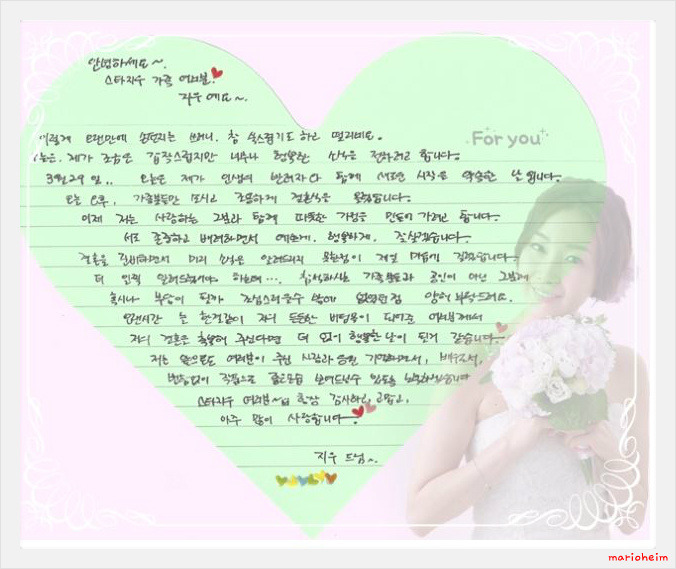 안녕하세요~.
스타지우 가족 여러분.
지우예요~.
For you
이렇게 오랜만에 손편지를 쓰려니, 참 쑥스럽기도 하고 떨리네요.
오늘은, 제가 조금은 갑작스럽지만 너무나 행복한 소식을 전하려고 합니다.
3월 29일.. 오늘은 제가 인생의 반려자와 함께 새로운 시작을 약속한 날입니다.
오늘 오후, 가족분들만 모시고 조용하게 결혼식을 올렸습니다.
이제 저는 사랑하는 그분과 함께 따뜻한 가정을 만들어 가려고 합니다.
서로 존중하고 배려하면서 예쁘게, 행복하게, 잘 살겠습니다.
결혼을 준비하면서 미리 소식을 알려드리지 못한 점이 제일 마음에 걸렸습니다.
더 일찍 알려드렸어야 하는데…. 참석하시는 가족분들과 공인이 아닌 그분께
혹시나 부담이 될까 조심스러울 수 밖에 없었던 점 양해 부탁드려요.
오랜시간 늘 한결같이 저의 든든한 버팀목이 되어준 여러분께서
저의 결혼을 축복해 주신다면 더 없이 행복한 날이 될거 같습니다.
저는 앞으로도 여러분이 주신 사랑과 응원 기억하면서, 배우로서,
변함없이 작품으로 좋은모습 보여드릴수 있도록 노력하겠습니다
스타지우 여러분~ 항상 감사하고, 고맙고,
아주 많이 사랑합니다.
지우 드림~.
marioheim